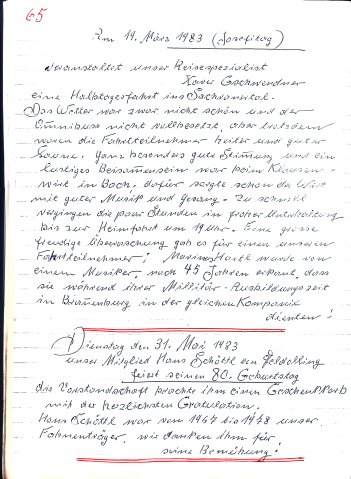 65
Am 19. März 1983 (Josefitag)
veranstaltet unser Reisespezialist
Xaver Gschwendner
eine Halbtagesfahrt ins Sachrantertal.
Das Wetter war zwar nicht schön und der
Omnibuss nicht vollbesetzt, aber trotzdem
waren die Fahrtteilnehmer heiter und guter
Laune. Ganz besonders gute Stimmung und ein
lustiges Beisammensein war beim Klausen-
wirt in Bach. dafür sorgte schon der Wirt
mit guter Musik und Gesang. Zu schnell
vergingen die paar Stunden in froher Unterhaltung
bis zur Heimfahrt um 19 Uhr. Eine grosse
freudige Überraschung gab es für einen unserer
Fahrtteilnehmer! Hartl wurde von
einem Musiker, nach 45 Jahren erkannt, dass
sie während ihrer Militär-Ausbildungszeit
in Brannenburg in der gleichen Kompanie
dienten!
Dienstag den 31. Mai 1983
unser Mitglied Hans Schöttl von Feldolling
feiert seinen 80. Geburtstag
die Vorstandschaft brachte ihm einen Geschenkkorb
mit der herzlichsten Gratulation.
Hans Schöttl war von 1947 bis 1978 unser
Fahnenträger, wir danken Ihm für
seine Bemühung!